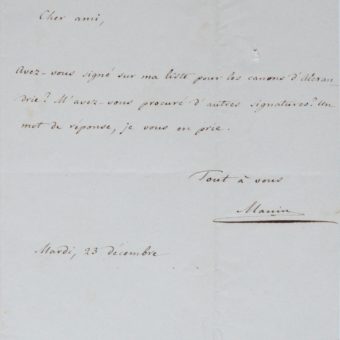 Cher ami,
Avez-vous signé sur ma liste pour les canons d'Alexan-
drie? M'avez-vous procuré d'autres signatures? Un
mot de réponse, je vous en prie.
Tout à vous
Manin
Mardi, 23 décembre